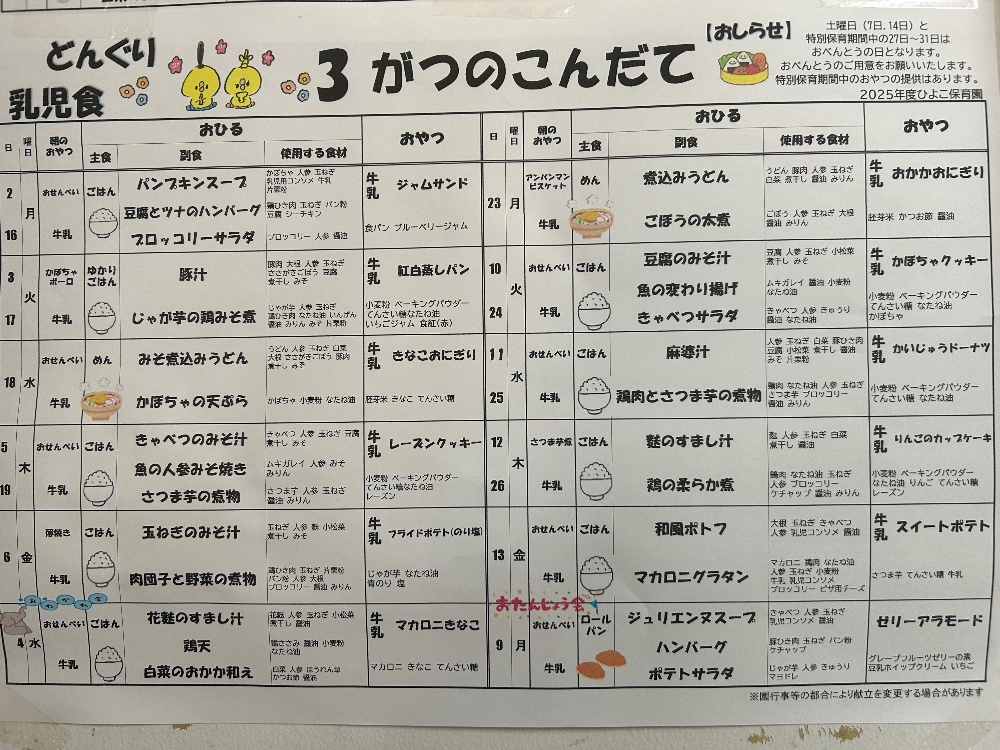 どんぐり
乳児食
3 がつのこんだて
【おしらせ】
土曜日(7日,14日)と
特別保育期間中の27日~31日は
おべんとうの日となります。
おべんとうのご用意をお願いいたします。
特別保育期間中のおやつの提供はあります。
2025年度ひよこ保育園
日 曜日 朝のおやつ おひる おやつ
主食 副食 使用する食材
2 月 16
おせんべい 牛乳
ごはん
パンプキンスープ
かぼちゃ 人参 玉ねぎ
乳児用コンソメ 牛乳
片栗粉
豆腐とツナのハンバーグ
鶏ひき肉 玉ねぎ パン粉
豆腐 シーチキン
ブロッコリーサラダ
ブロッコリー 人参 醤油
牛乳 ジャムサンド
食パン ブルーベリージャム
3 火 17
かぼちゃボーロ 牛乳
ゆかりごはん
豚汁
豚肉 大根 人参 玉ねぎ
ささがきごぼう 豆腐
煮干し みそ
じゃが芋の鶏みそ煮
じゃが芋 人参 玉ねぎ
鶏ひき肉 なたね油 いんげん
醤油 みりん みそ 片栗粉
牛乳 紅白蒸しパン
小麦粉 ベーキングパウダー
てんさい糖なたね油
いちごジャム 食紅(赤)
18 水
おせんべい 牛乳
めん
みそ煮込みうどん
うどん 人参 玉ねぎ 白菜
大根 ささがきごぼう 豚肉
煮干し みそ
かぼちゃの天ぷら
かぼちゃ 小麦粉 なたね油
牛乳 きなこおにぎり
胚芽米 きなこ てんさい糖
5 木 19
おせんべい 牛乳
ごはん
きゃべつのみそ汁
きゃべつ 人参 玉ねぎ 豆腐
煮干し みそ
魚の人参みそ焼き
ムキガレイ 人参 みそ
みりん
さつま芋の煮物
さつま芋 人参 玉ねぎ
醤油 みりん
牛乳 レーズンクッキー
小麦粉 ベーキングパウダー
てんさい糖なたね油
レーズン
6 金
薄焼き 牛乳
ごはん
玉ねぎのみそ汁
玉ねぎ 人参 麩 小松菜
煮干し みそ
肉団子と野菜の煮物
鶏ひき肉 玉ねぎ 片栗粉
パン粉 人参 大根
ブロッコリー 醤油 みりん
牛乳 フライドポテト(のり塩)
じゃが芋 なたね油
青のり 塩
4 水
おせんべい 牛乳
ごはん
花麩のすまし汁
花麩 人参 玉ねぎ 小松菜
煮干し 醤油
鶏天
鶏ささみ 醤油 小麦粉
なたね油
白菜のおかか和え
白菜 人参 ほうれん草
かつお節 醤油
牛乳 マカロニきなこ
マカロニ きなこ てんさい糖
日 曜日 朝のおやつ おひる おやつ
主食 副食 使用する食材
23 月
アンパンマンビスケット 牛乳
めん
煮込みうどん
うどん 豚肉 人参 玉ねぎ
白菜 煮干し 醤油 みりん
ごぼうの太煮
ごぼう 人参 玉ねぎ 大根
醤油 みりん
牛乳 おかかおにぎり
胚芽米 かつお節 醤油
10 火 24
おせんべい 牛乳
ごはん
豆腐のみそ汁
豆腐 人参 玉ねぎ 小松菜
煮干し みそ
魚の変わり揚げ
ムキガレイ 醤油 小麦粉
なたね油
きゃべつサラダ
きゃべつ 人参 きゅうり
醤油 なたね油
牛乳 かぼちゃクッキー
小麦粉 ベーキングパウダー
てんさい糖 なたね油
かぼちゃ
11 水 25
おせんべい 牛乳
ごはん
麻婆汁
人参 玉ねぎ 白菜 豚ひき肉
豆腐 小松菜 煮干し 醤油
みそ 片栗粉
鶏肉とさつま芋の煮物
鶏肉 なたね油 人参 玉ねぎ
さつま芋 ブロッコリー
醤油 みりん
牛乳 かいじゅうドーナツ
小麦粉 ベーキングパウダー
てんさい糖 なたね油
12 木 26
さつま芋煮 牛乳
ごはん
麩のすまし汁
麩 人参 玉ねぎ 白菜
煮干し 醤油
鶏の柔らか煮
鶏肉 なたね油 玉ねぎ
人参 ブロッコリー
ケチャップ 醤油 みりん
牛乳 りんごのカップケーキ
小麦粉 ベーキングパウダー
なたね油 りんご てんさい糖
レーズン
13 金
おせんべい 牛乳
ごはん
和風ポトフ
大根 玉ねぎ きゃべつ
人参 乳児コンソメ 醤油
マカロニグラタン
マカロニ 鶏肉 なたね油
人参 玉ねぎ 小麦粉
牛乳 乳児コンソメ
ブロッコリー ピザ用チーズ
牛乳 スイートポテト
さつま芋 てんさい糖 牛乳
おたんじょう会
9 月
おせんべい 牛乳
ロールパン
ジュリエンヌスープ
きゃべつ 人参 玉ねぎ
乳児コンソメ 醤油
ハンバーグ
豚ひき肉 玉ねぎ パン粉
ケチャップ
ポテトサラダ
じゃが芋 人参 きゅうり
マヨドレ
ゼリーアラモード
グレープフルーツゼリーの素
豆乳ホイップクリーム いちご
※園行事等の都合により献立を変更する場合があります